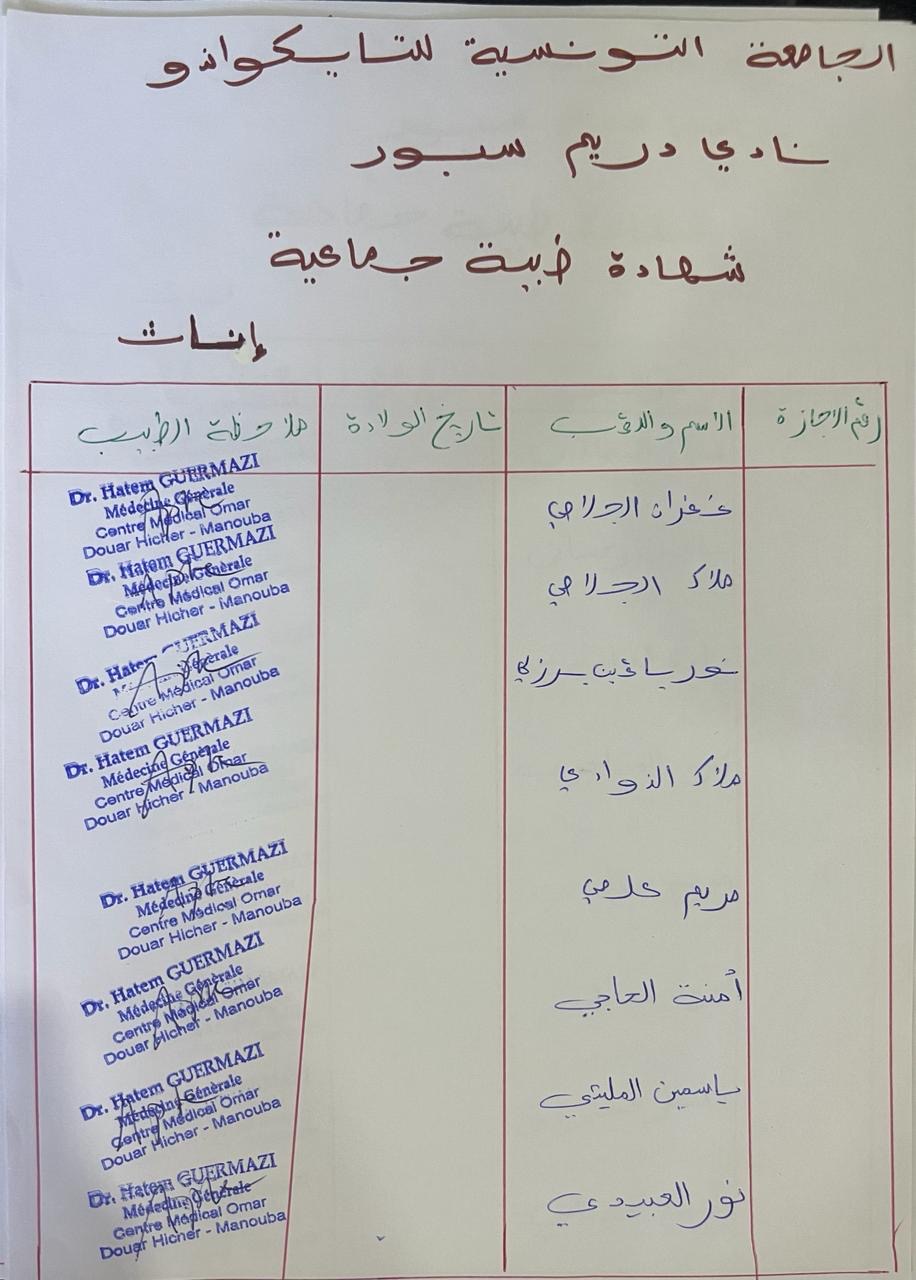 الجامعة التونسية للتايكواندو
نادي دريم سبور
شهادة طبية جماعية
إناث
رقم الاجازة الاسم واللقب تاريخ الولادة ملاحظة الطبيب
غفران الجلاصي
Dr. Hatem GUERMAZI
Médecine Générale
Centre Médical Omar
Douar Hicher - Manouba
ملاك الجلاصي
Dr. Hatem GUERMAZI
Médecine Générale
Centre Médical Omar
Douar Hicher - Manouba
نور
Dr. Hatem GUERMAZI
Générale
Centre Médical Omar
Douar Hicher - Manouba
ملاك الذوادي
Dr. Hatem GUERMAZI
Médecine Générale
Centre Médical Omar
Douar Hicher - Manouba
مريم علمي
Dr. Hatem GUERMAZI
Médecine Générale
Centre Médical Omar
Douar Hicher - Manouba
أمنة العاجي
Dr. Hatem GUERMAZI
Médecine Générale
Centre Médical Omar
Douar Hicher - Manouba
ياسمين المليتي
Dr. Hatem GUERMAZI
Médecine Générale
Centre Médical Omar
Douar Hicher - Manouba
نور العبيدي
Dr. Hatem GUERMAZI
Médecine Générale
Centre Médical Omar
Douar Hicher - Manouba